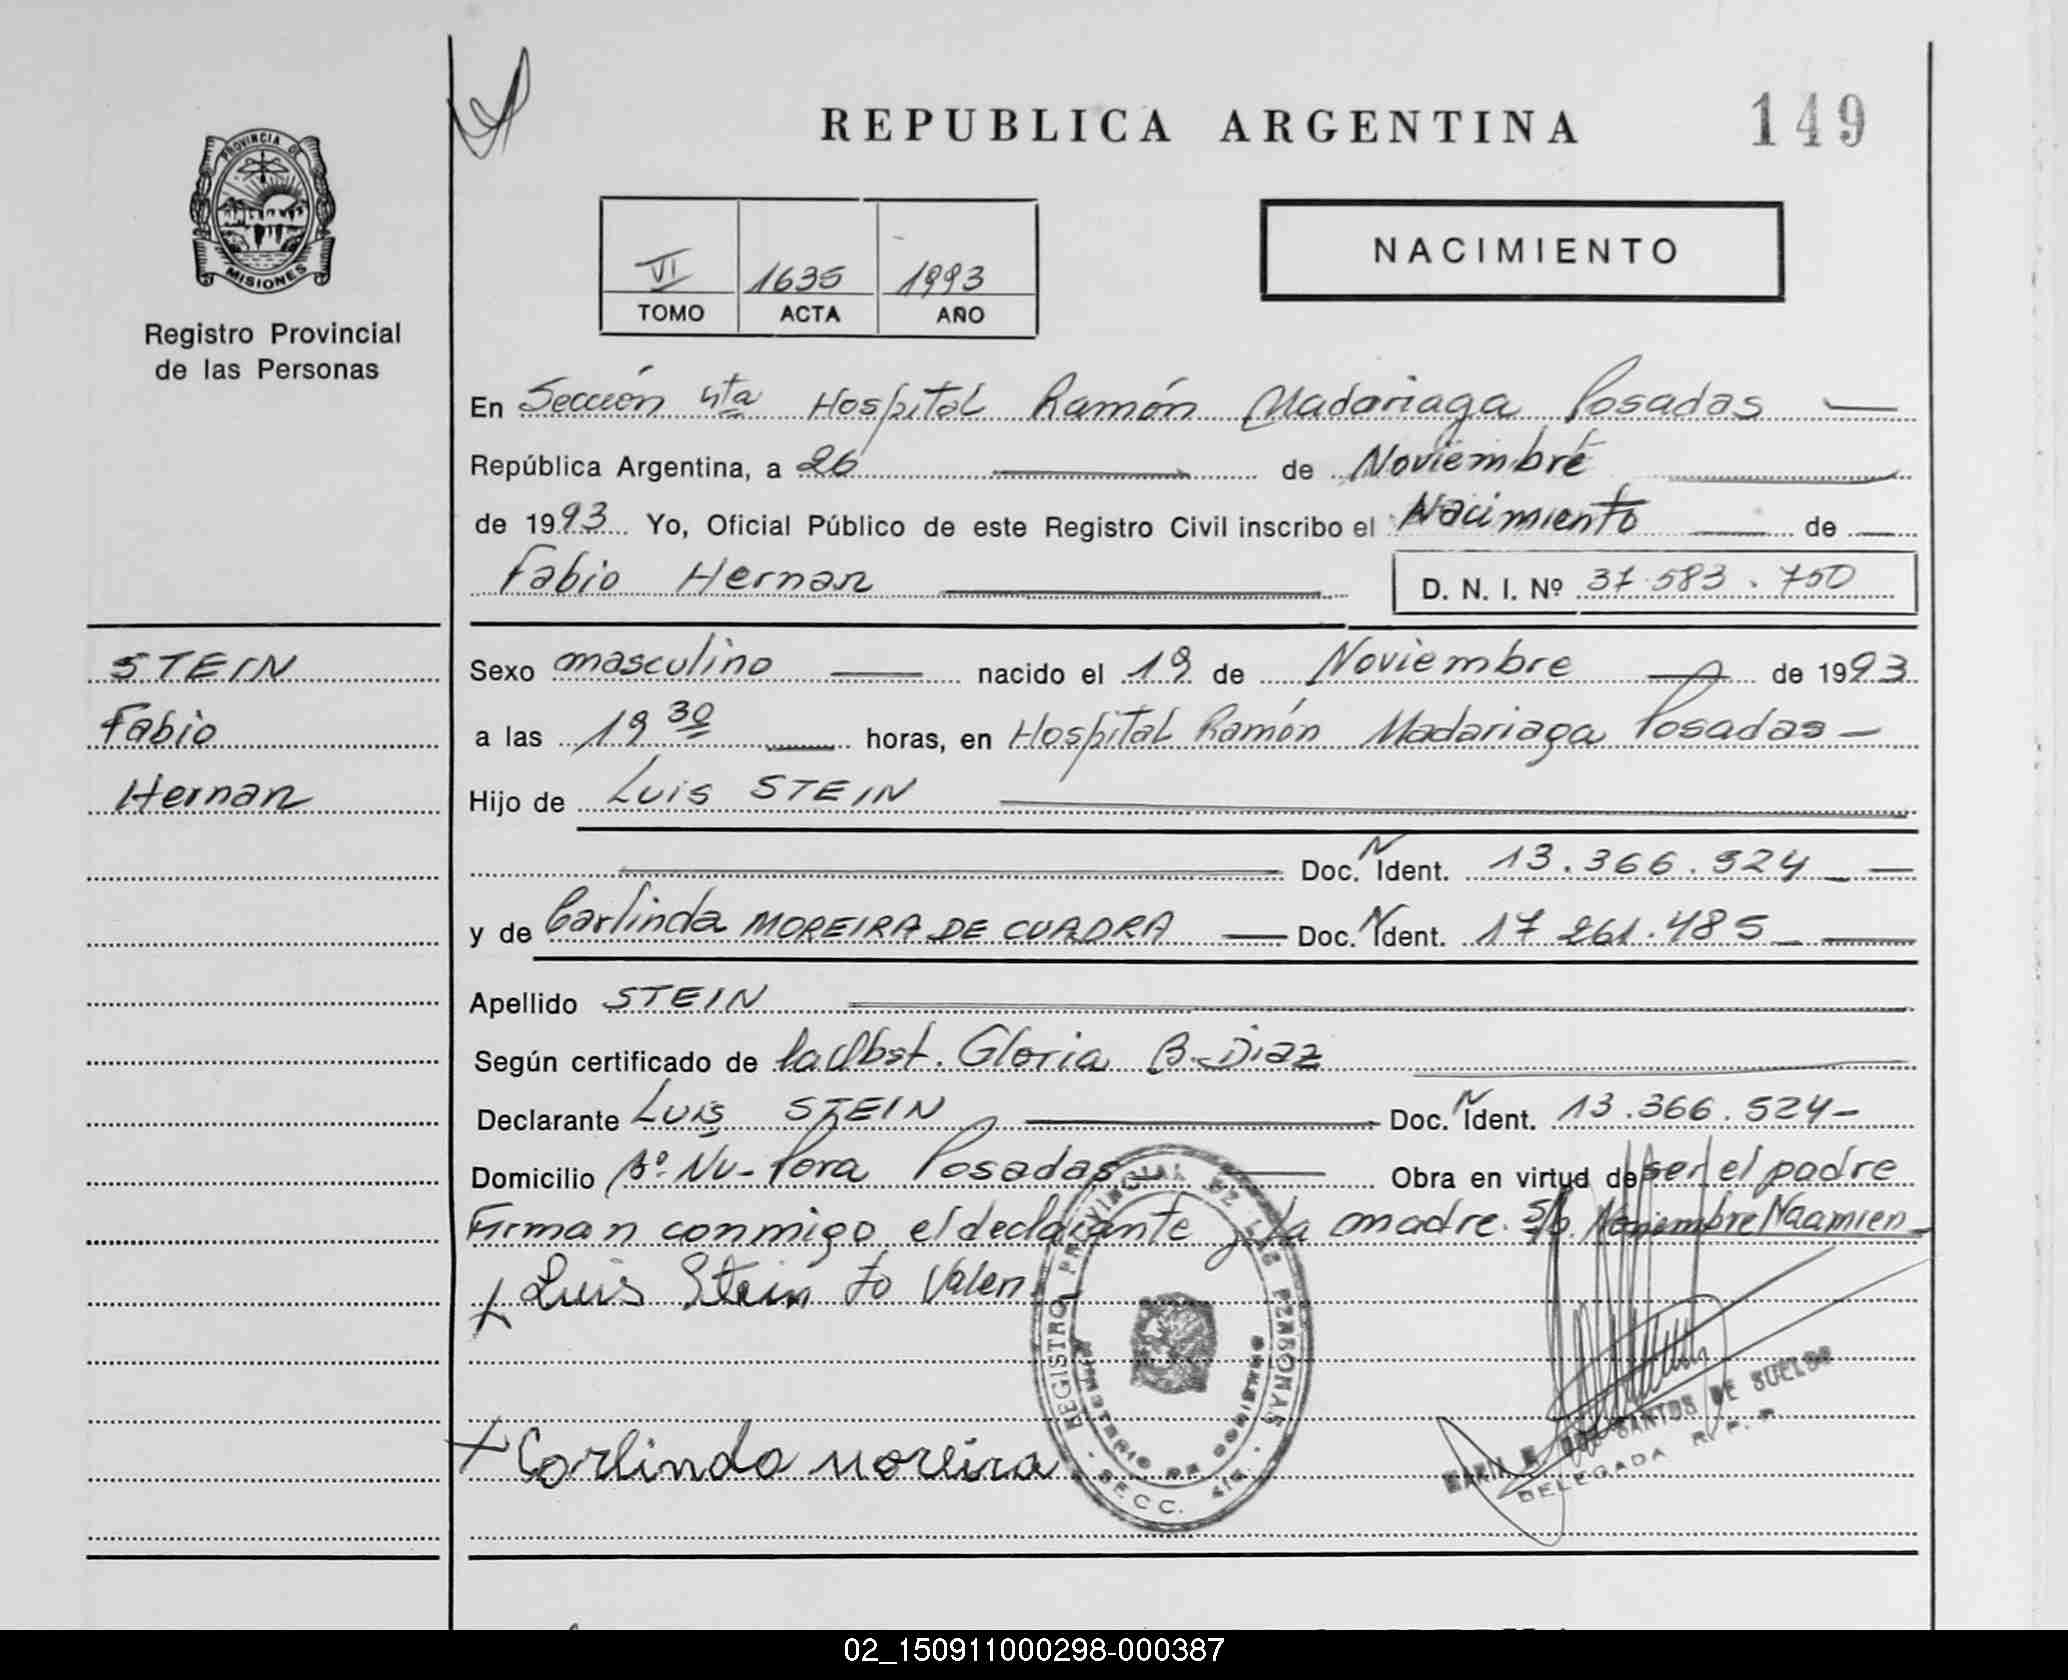 REPUBLICA ARGENTINA
149
PROVINCIA DE
MISIONES
Registro Provincial
de las Personas
VI 1635 1993
TOMO ACTA AÑO
NACIMIENTO
En Sección 4ta Hospital Ramón Madariaga Posadas —
República Argentina, a 26 de Noviembre
de 1993 Yo, Oficial Público de este Registro Civil inscribo el Nacimiento de
Fabio Hernan
D. N. I. Nº 37.583.750
STEIN
Fabio
Hernan
Sexo masculino nacido el 19 de Noviembre de 1993
a las 19 30 horas, en Hospital Ramón Madariaga Posadas —
Hijo de Luis STEIN
Doc. N Ident. 13.366.524
y de Carlinda MOREIRA DE CUADRA Doc. N Ident. 17 261.485
Apellido STEIN
Según certificado de la Obst. Gloria B. Diaz
Declarante Luis STEIN Doc. N Ident. 13.366.524 —
Domicilio Bº Nu-Pora Posadas Obra en virtud de ser el padre
Firman conmigo el declarante y la madre. S/b. Noviembre Naamien
Luis Stein fo Valen
Carlinda Moreira
REGISTRO PROVINCIAL DE LAS PERSONAS
MINISTERIO DE GOBIERNO
SECC. 4ta.
MARIA DOS SANTOS DE SUELDO
DELEGADA R. P. P.
02_150911000298-000387